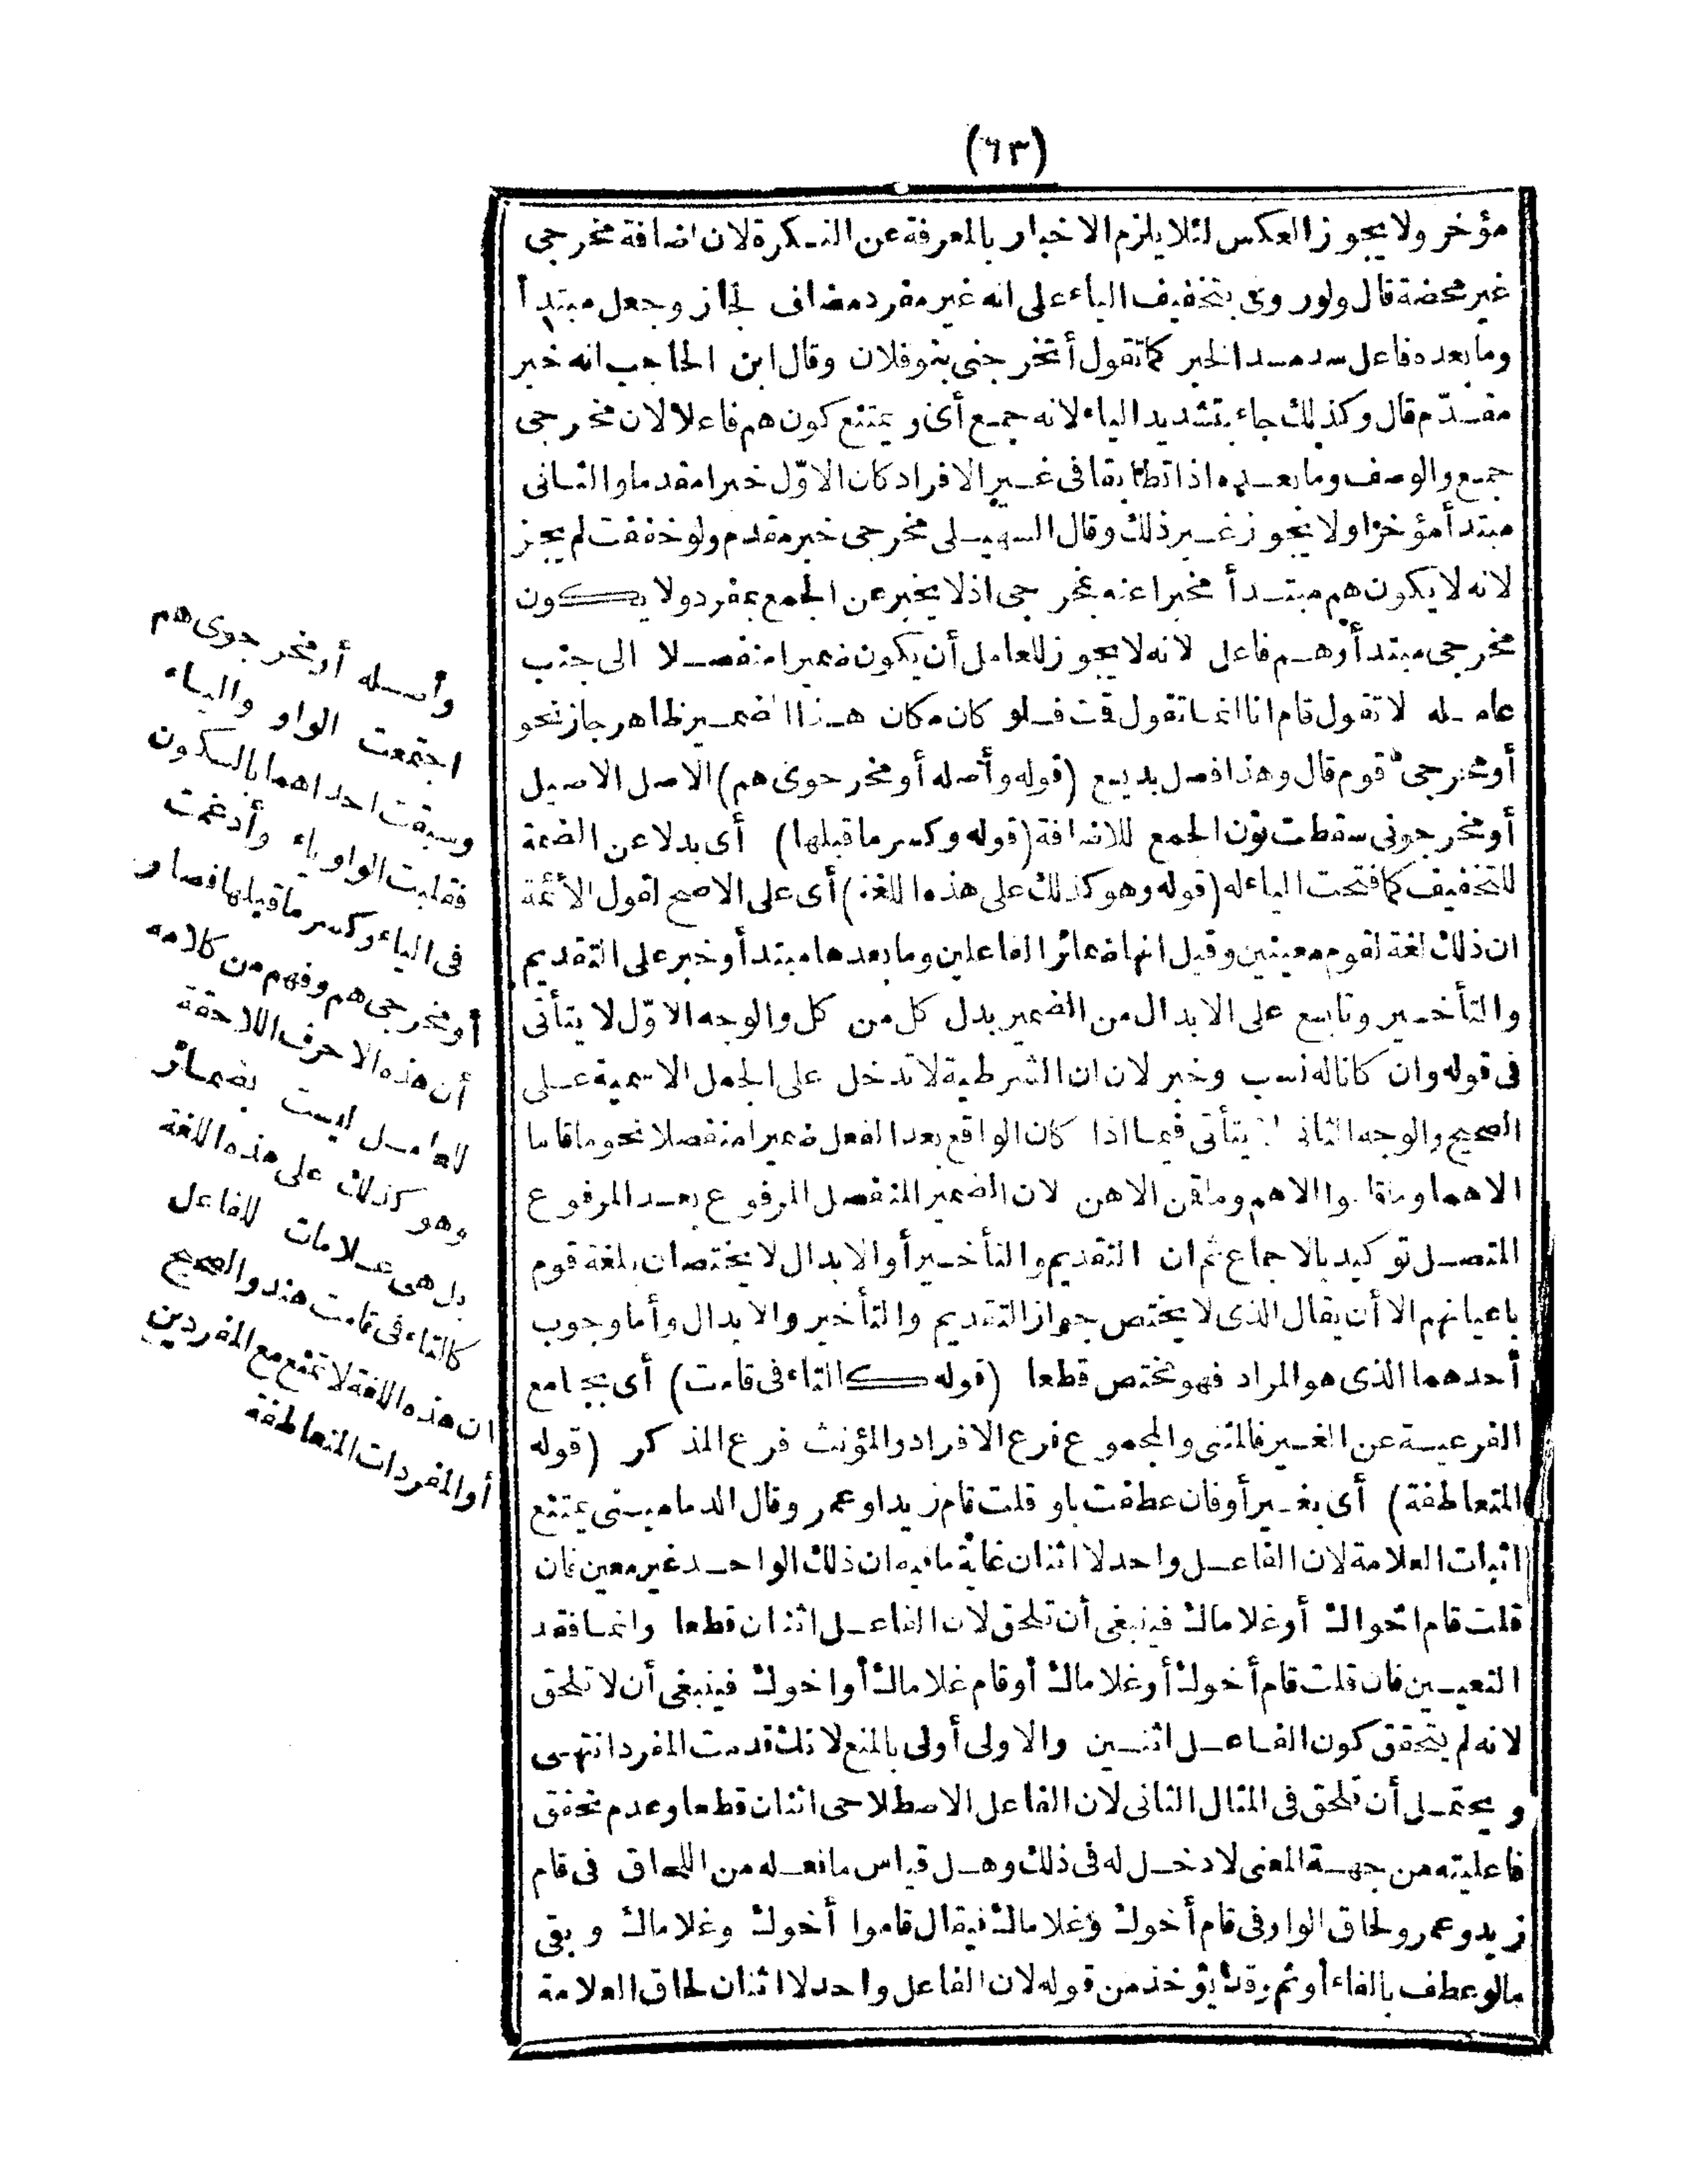 (٦٣)
مؤخر ولا يجوز العكس لئلا يلزم الاخبار بالمعرفة عن النكرة لان اضافة مخرجي
غير محضة قال ولو روى بتخفيف الياء على انه غير مفرد مضاف لجاز وجعل مبتدأ
وما بعده فاعل سد مسد الخبر كما تقول أتخرجني بنو فلان وقال ابن الحاجب انه خبر
مقدّم قال وكذلك جاء بتشديد الياء لانه جمع أى ويمتنع كون هم فاعلا لان مخرجي
جمع والوصف وما بعده اذا تطابقا فى غير الافراد كان الاوّل خبرا مقدما والثانى
مبتدأ مؤخرا ولا يجوز غير ذلك وقال السهيلى مخرجى خبر مقدم ولو خففت لم يجز
لانه لا يكون هم مبتدأ مخبرا عنه بمخرجى اذ لا يخبر عن الجمع بمفرد ولا يكون
مخرجى مبتدأ وهم فاعل لانه لا يجوز للعامل أن يكون ضميرا منفصلا الى جنب
عامله لا تقول قام انا انما تقول قمت فلو كان مكان هذا الضمير ظاهر جاز نحو
أومخرجى قوم قال وهذا فصل بديع (قوله وأصله أو مخرجوى هم) الاصل الاصيل
أو مخرجونى سقطت نون الجمع للاضافة (قوله وكسر ما قبلها) أى بدلا عن الضمة
للتخفيف كما فتحت الياء له (قوله وهو كذلك على هذه اللغة) أى على الاصح لقول الأئمة
ان ذلك لغة لقوم معينين وقيل انها ضمائر الفاعلين وما بعدها مبتدأ وخبر على التقديم
والتأخير وتابع على الابدال من الضمير بدل كل من كل والوجه الاوّل لا يتأتى
فى قوله وان كانا له نسب وخير لان ان الشرطية لا تدخل على الجمل الاسمية على
الصحيح والوجه الثانى لا يتأتى فيما اذا كان الواقع بعد الفعل ضميرا منفصلا نحو ما قاما
الا هما وما قاموا الا هم وما قمن الا هن لان الضمير المنفصل المرفوع بعد المرفوع
المتصل توكيد بالاجماع ثم ان التقديم والتأخير أو الابدال لا يختصان بلغة قوم
باعيانهم الا أن يقال الذى لا يختص جواز التقديم والتأخير والابدال وأما وجوب
أحدهما الذى هو المراد فهو مختص قطعا (قوله كالتاء فى قامت) أى بجامع
الفرعية عن الغير فالمثنى والمجموع فرع الافراد والمؤنث فرع المذكر (قوله
المتعاطفة) أى بغير أو فان عطفت باو قلت قام زيد او عمر وقال الدمامينى يمتنع
اثبات العلامة لان الفاعل واحد لا اثنان غاية ما فيه ان ذلك الواحد غير معين فان
قلت قام اخواك أو غلاماك فينبغى أن تلحق لان الفاعل اثنان قطعا وانما فقد
التعيين فان قلت قام أخوك أو غلاماك أو قام غلاماك أو اخوك فينبغى أن لا تلحق
لانه لم يتحقق كون الفاعل اثنين والاولى أولى بالمنع لانك قدمت المفرد انتهى
ويحتمل أن تلحق فى المثال الثانى لان الفاعل الاصطلاحى اثنان قطعا وعدم تحقق
فاعليته من جهة المعنى لا دخل له فى ذلك وهل قياس ما نعله من اللحاق فى قام
زيد وعمر ولحاق الواو فى قام أخوك وغلاماك فيقال قاموا أخوك وغلاماك وبقى
مالو عطف بالفاء أو ثم وقد يؤخذ من قوله لان الفاعل واحد لا اثنان لحاق العلامة
وأصله أو مخرجوى هم
اجتمعت الواو والياء
وسبقت احداهما بالسكون
فقلبت الواو ياء وأدغمت
فى الياء وكسر ما قبلها فصار
أو مخرجى هم وفهم من كلامه
أن هذه الاحرف اللاحقة
للعامل ليست بضمائر
وهو كذلك على هذه اللغة
بل هى علامات للفاعل
كالتاء فى قامت هند والصحيح
ان هذه اللغة لا تمتنع مع المفردين
أو المفردات المتعاطفة